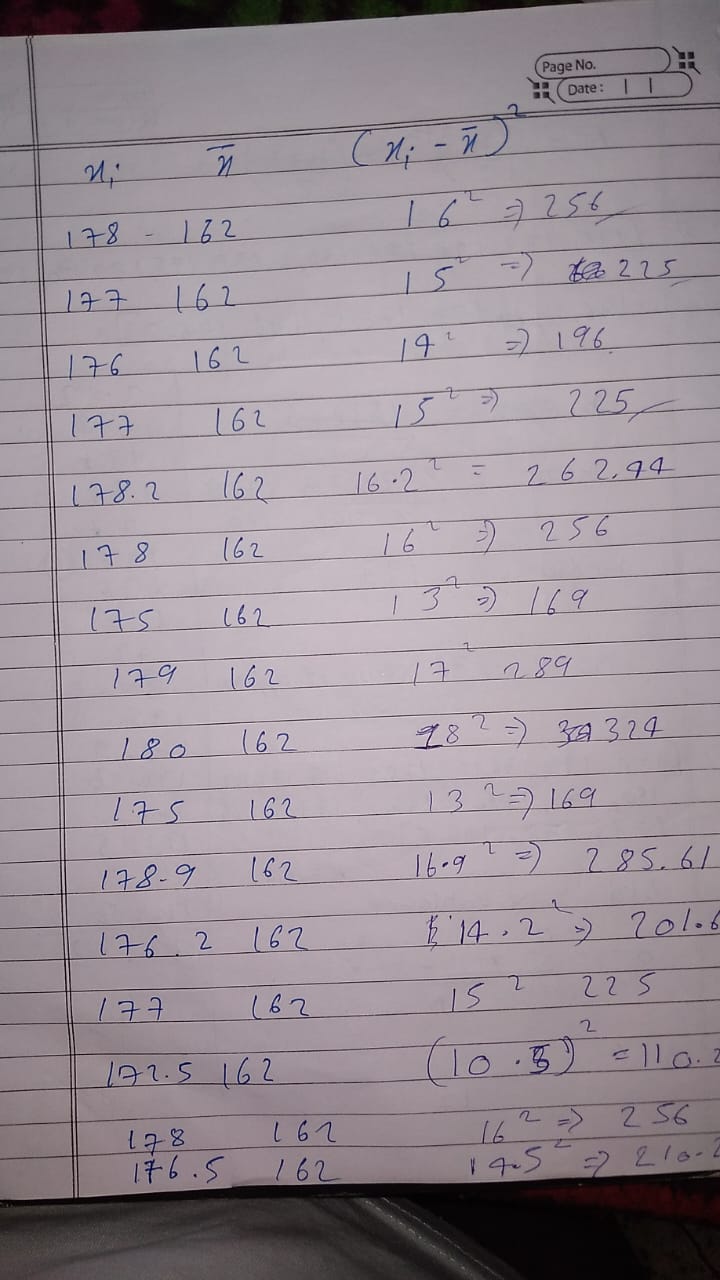 Page No.
Date:
xᵢ x̄ (xᵢ - x̄)²
178 - 162 16² ⇒ 256
177 162 15² ⇒ 225
176 162 14² ⇒ 196
177 162 15² ⇒ 225
178.2 162 16.2² = 262.44
178 162 16² ⇒ 256
175 162 13² ⇒ 169
179 162 17² 289
180 162 18² ⇒ 324
175 162 13² ⇒ 169
178.9 162 16.9² ⇒ 285.61
176.2 162 14.2² ⇒ 201.6
177 162 15² 225
172.5 162 (10.5)² = 110.2
178 162 16² ⇒ 256
176.5 162 14.5² ⇒ 210.2